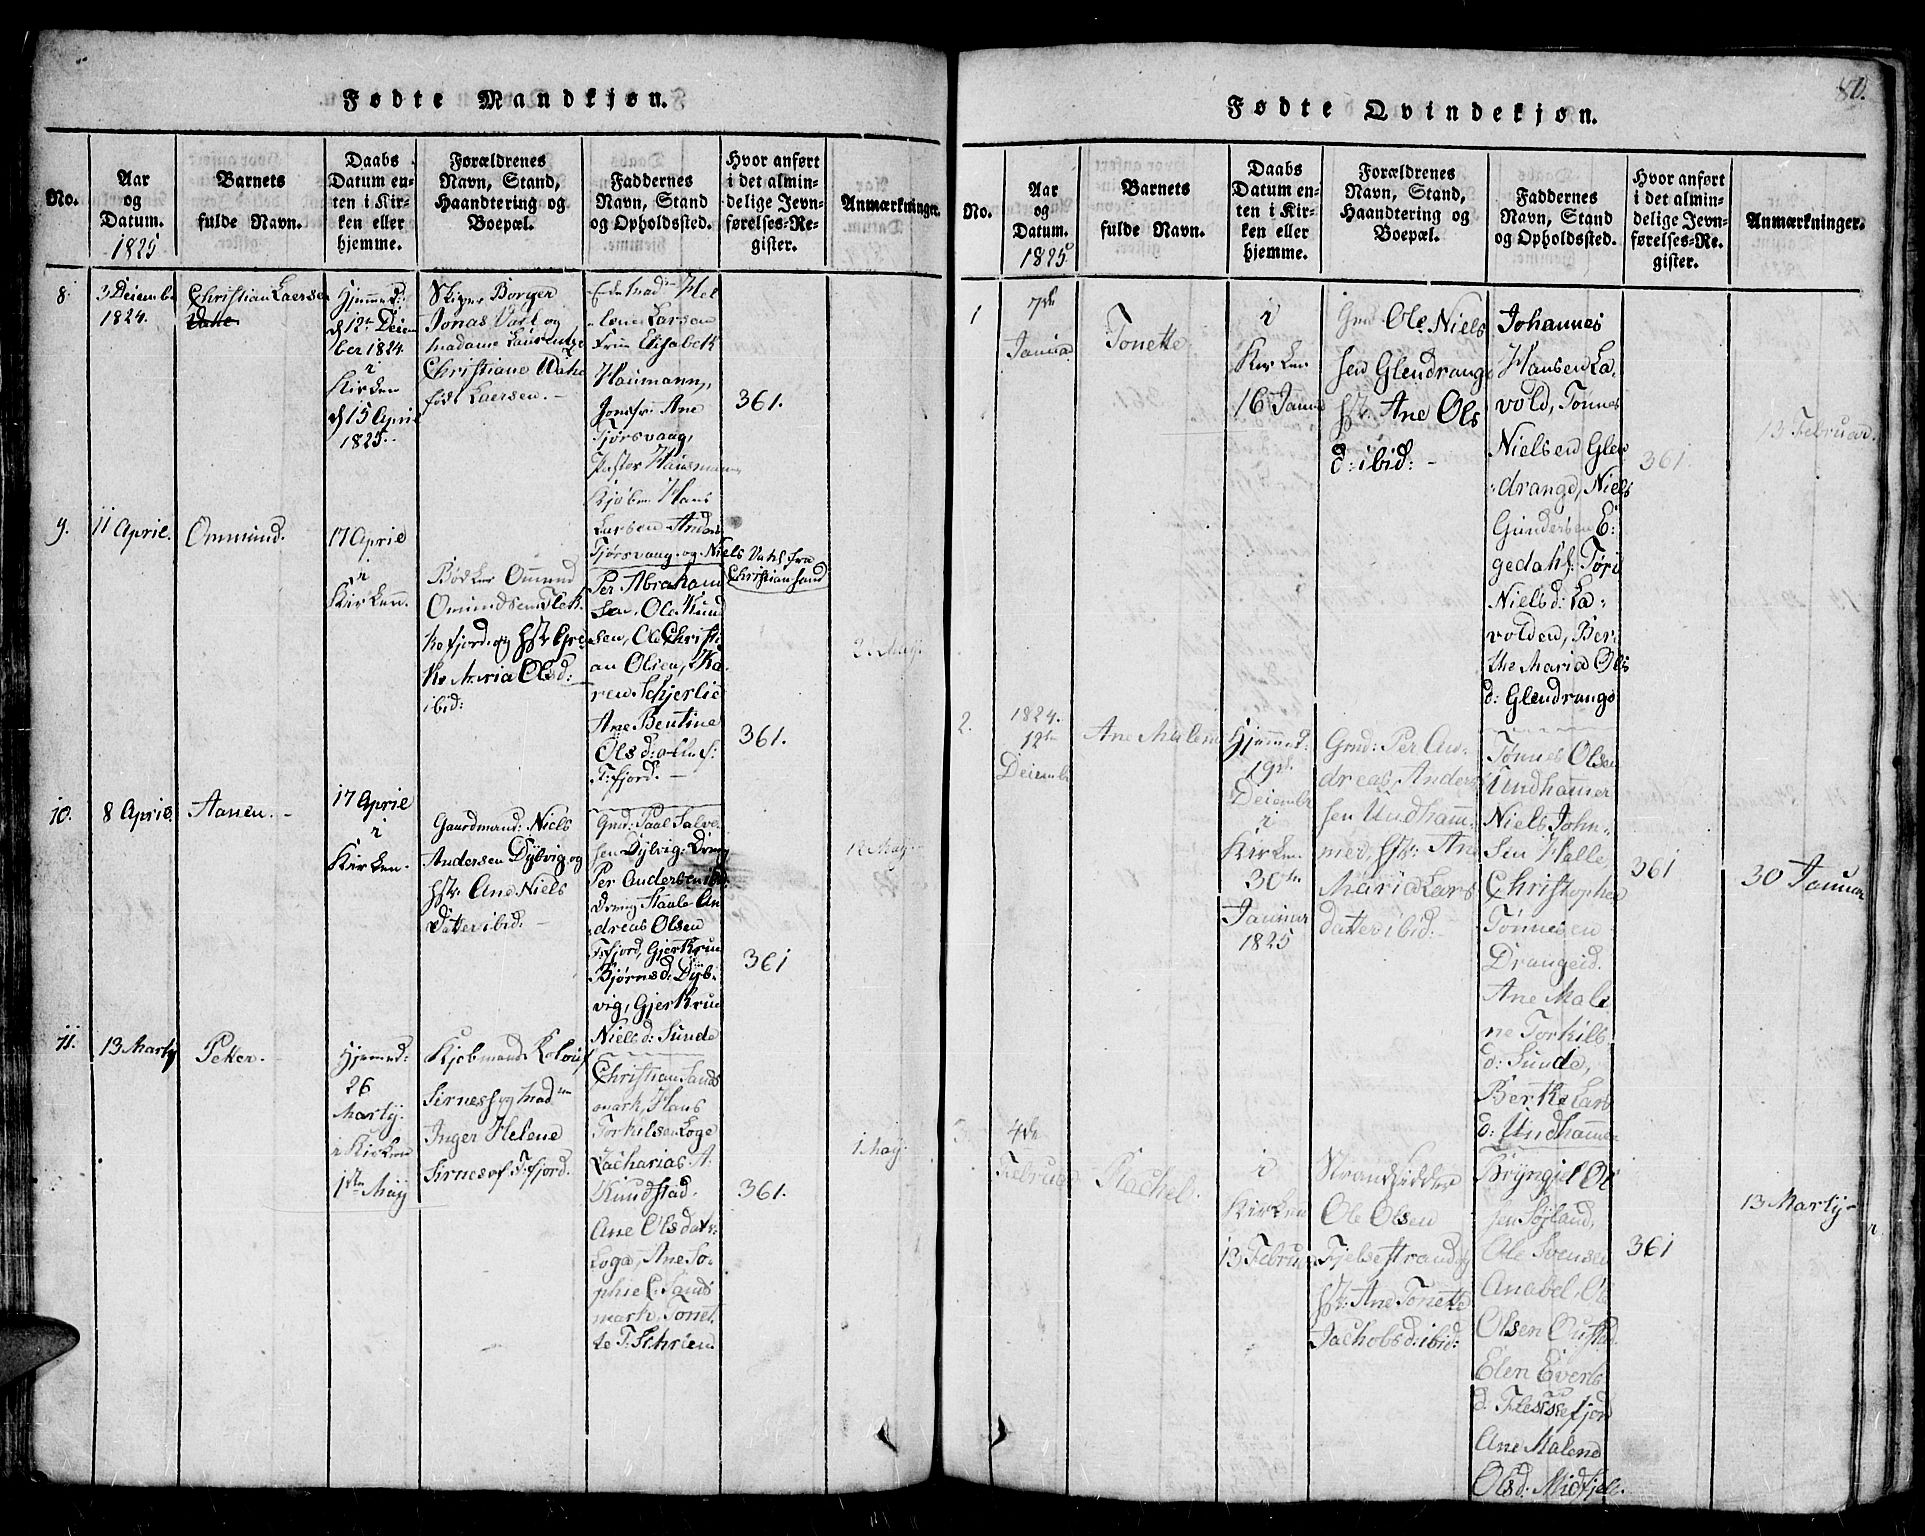 80.
Fødte Mandkjøn.
No.
Aar
og
Datum.
1825
Barnets
fulde Navn.
Daabs
Datum en-
ten i Kir-
ken eller
hjemme.
Forældrenes
Navn, Stand,
Haandtering og
Boepæl.
Faddernes
Navn, Stand
og Opholdssted.
Hvor anført
i det almin-
delige Jevn-
førelses-Re-
gister.
Anmærkninger.
8.
3 Decembr
1824.
Christian Laersen
Hjemmed:
d 12te Decem
ber 1824.
i
Kirken
d 15 April
1825.
Borger
Jonas Vatl og
Madame
Christiane
født Laersen.
Larsen
Elisabeth
Haumann,
Jomfr: Ane
Tjørsvaag,
Pastor Hausmann
Kjøbm Hans
Larsen
Tjørsvaag og Niels Vahl fra
Christiansand
361.
9.
11 April.
Ommund.
17 April
i
Kirken.
Bødker Ommund
Omundsen Flek
kefjord og Hstr
Maria Olsd:
ibid:
Per Abraham
sen, Ole Knud
sen, Ole Christi
an Olsen, Ka
ren Schjerlie
Ane Bentine
Olsd: alle f:
F:fjord.
361.
2 May.
10.
8 April.
Aanen.
17 April
i
Kirken.
Gaardmand: Niels
Andersen Dybvig og
Hstr: Ane Niels
Datter ibid.
Gmd: Paal Salve
sen Dybvig: Dreng
Per Andersen ibid
Dreng Staale An
dreas Olsen
F:fjord, Gjertrun
Bjørnsd: Dyb-
vig, Gjertrun
Nielsd: Sunde
361
12 May
11.
13 Marty
Petter.
Hjemmed:
26
Marty.
i Kirken
1ste May
Kjøbmand
Sirnes og Mad
Inger Helene
Sirnes af F:fjord.
Christian Sands
mark, Hans
Torkilsen Loge
Zacharias A.
Knudstad.
Ane Olsdatr
Loge, Ane So-
phie C. Sands
mark, Tonet
te F.
361.
1 May.
Fødte Qvindekjøn.
No.
Aar
og
Datum.
1825
Barnets
fulde Navn.
Daabs
Datum en-
ten i Kir-
ken eller
hjemme.
Forældrenes
Navn, Stand,
Haandtering og
Boepæl.
Faddernes
Navn, Stand
og Opholdssted.
Hvor anført
i det almin-
delige Jevn-
førelses-Re-
gister.
Anmærkninger.
1
7de
Januar
Tonette.
i
Kirken
16 Janua
Gmd Ole Niels
sen Glendrange
Hstr: Ane Ols
d: ibid:
Johannes
Hansen La
vold, Tønnes
Nielsen Glen
drange, Niels
Gundersen E:
gedahl: Tøri
Nielsd: La-
volden, Ber
the Maria Ols
d: Glendrange
361
13 Februar.
2.
1824.
12te
Decembr
Ane Malene
Hjemmed:
19de
Decembr
i
Kirken
30te
Januar
1825
Gmd: Per An-
dreas Ander
sen Undham-
mer, Hstr: Ane
Maria Lars
datter ibid:
Tønnes Olsen
Undhammer
Niels John-
sen Halle,
Christopher
Tønnesen
Drangeid.
Ane Male
ne Torkils
d: Sunde,
Berthe Lars
d: Undhammer
361
30 Januar
3.
4de
Februar
Rachel.
i
Kirken
13 Februar
Strandsidder
Ole Olsen
Fjelsestrand og
Hstr: Ane Tonette
Jachobsd: ibid:
Bryngiel Ol
sen Søyland,
Ole Svensen
Anabel, Ole
Olsen
Elen Everts
d: Flekkefjord
Ane Malene
Olsd: Midfjell.
361
13 Marty